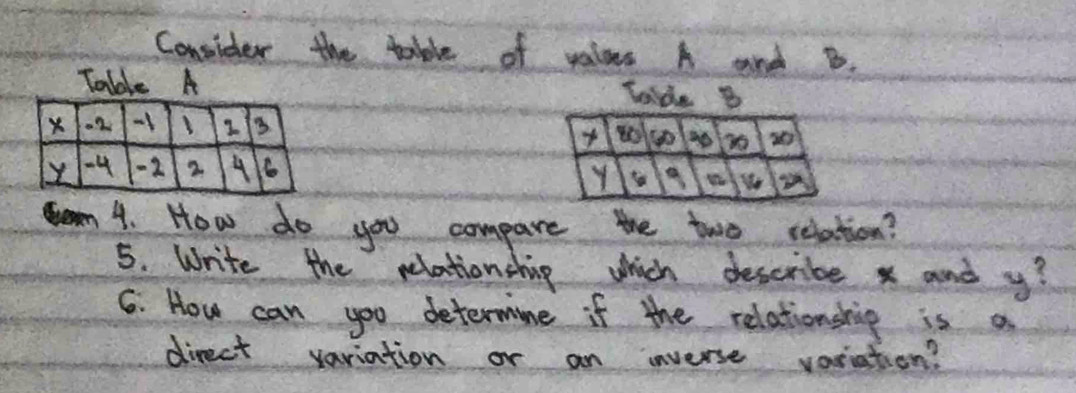 Consider the table of values A and B.
Table A
Table B
x -2 -1 1 2 3
y -4 -2 2 4 6
x 80 60 40 30 20
y 6 9 12 16 24
4. How do you compare the two relation?
5. Write the relationship which describe x and y?
6. How can you determine if the relationship is a
direct variation or an inverse variation?